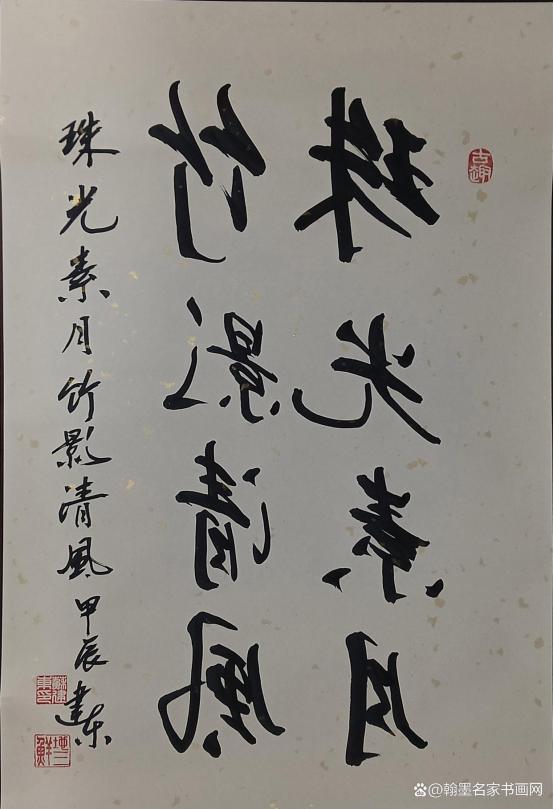 古趣
珠光素月
竹影清风
珠光素月竹影清風甲辰建东
@翰墨名家书画网